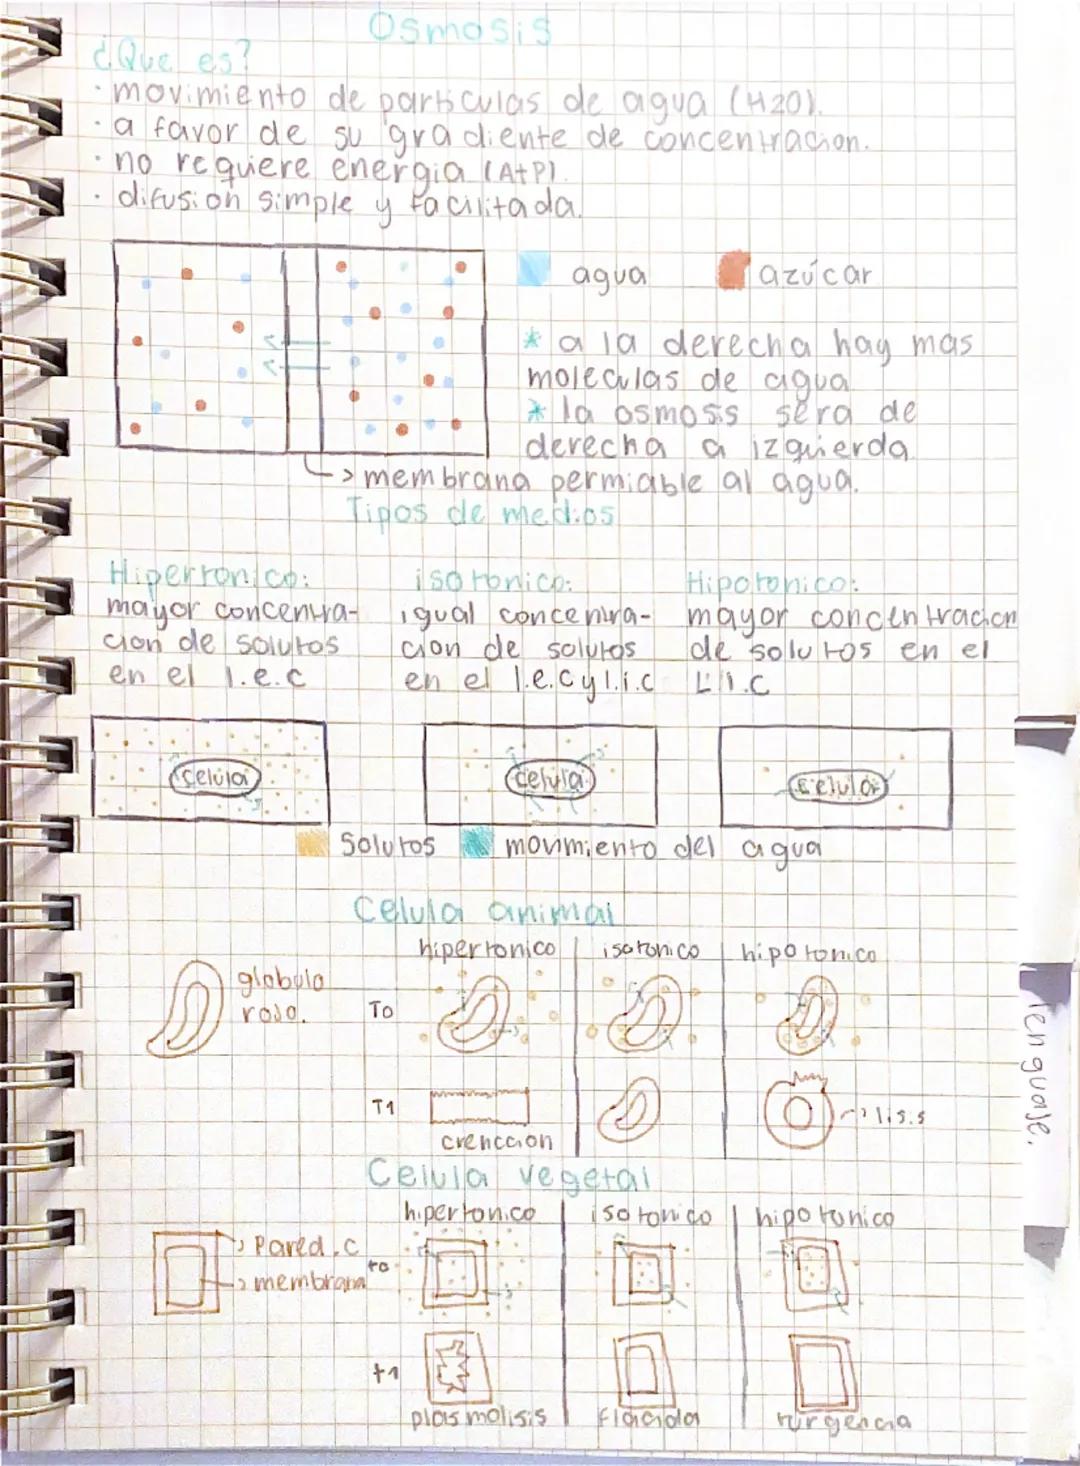 Osmosis
¿Que es?
· movimiento de particulas de agua (H2O).
· a favor de su gradiente de concentracion.
· no requiere energia (AtP).
· difusion simple y facilitada.
agua azúcar
* a la derecha hay mas
moleculas de agua
* la osmosis sera de
derecha a izquierda
membrana permiable al agua.
Tipos de medios
Hipertonico: isotonico: Hipotonico:
mayor concentra- igual concentra- mayor concentracion
cion de solutos cion de solutos de solutos en el
en el l.e.c en el l.e.c y l.i.c L.I.C
celula celula celula
Solutos movimiento del agua
Celula animal
hipertonico isotonico hipotonico
globulo
rojo.
To
T1
lisis
crenccion
lenguaje.
Celula vegetal
hipertonico isotonico hipotonico
Pared.c
membrana
to
t1
plasmolisis flacida turgencia